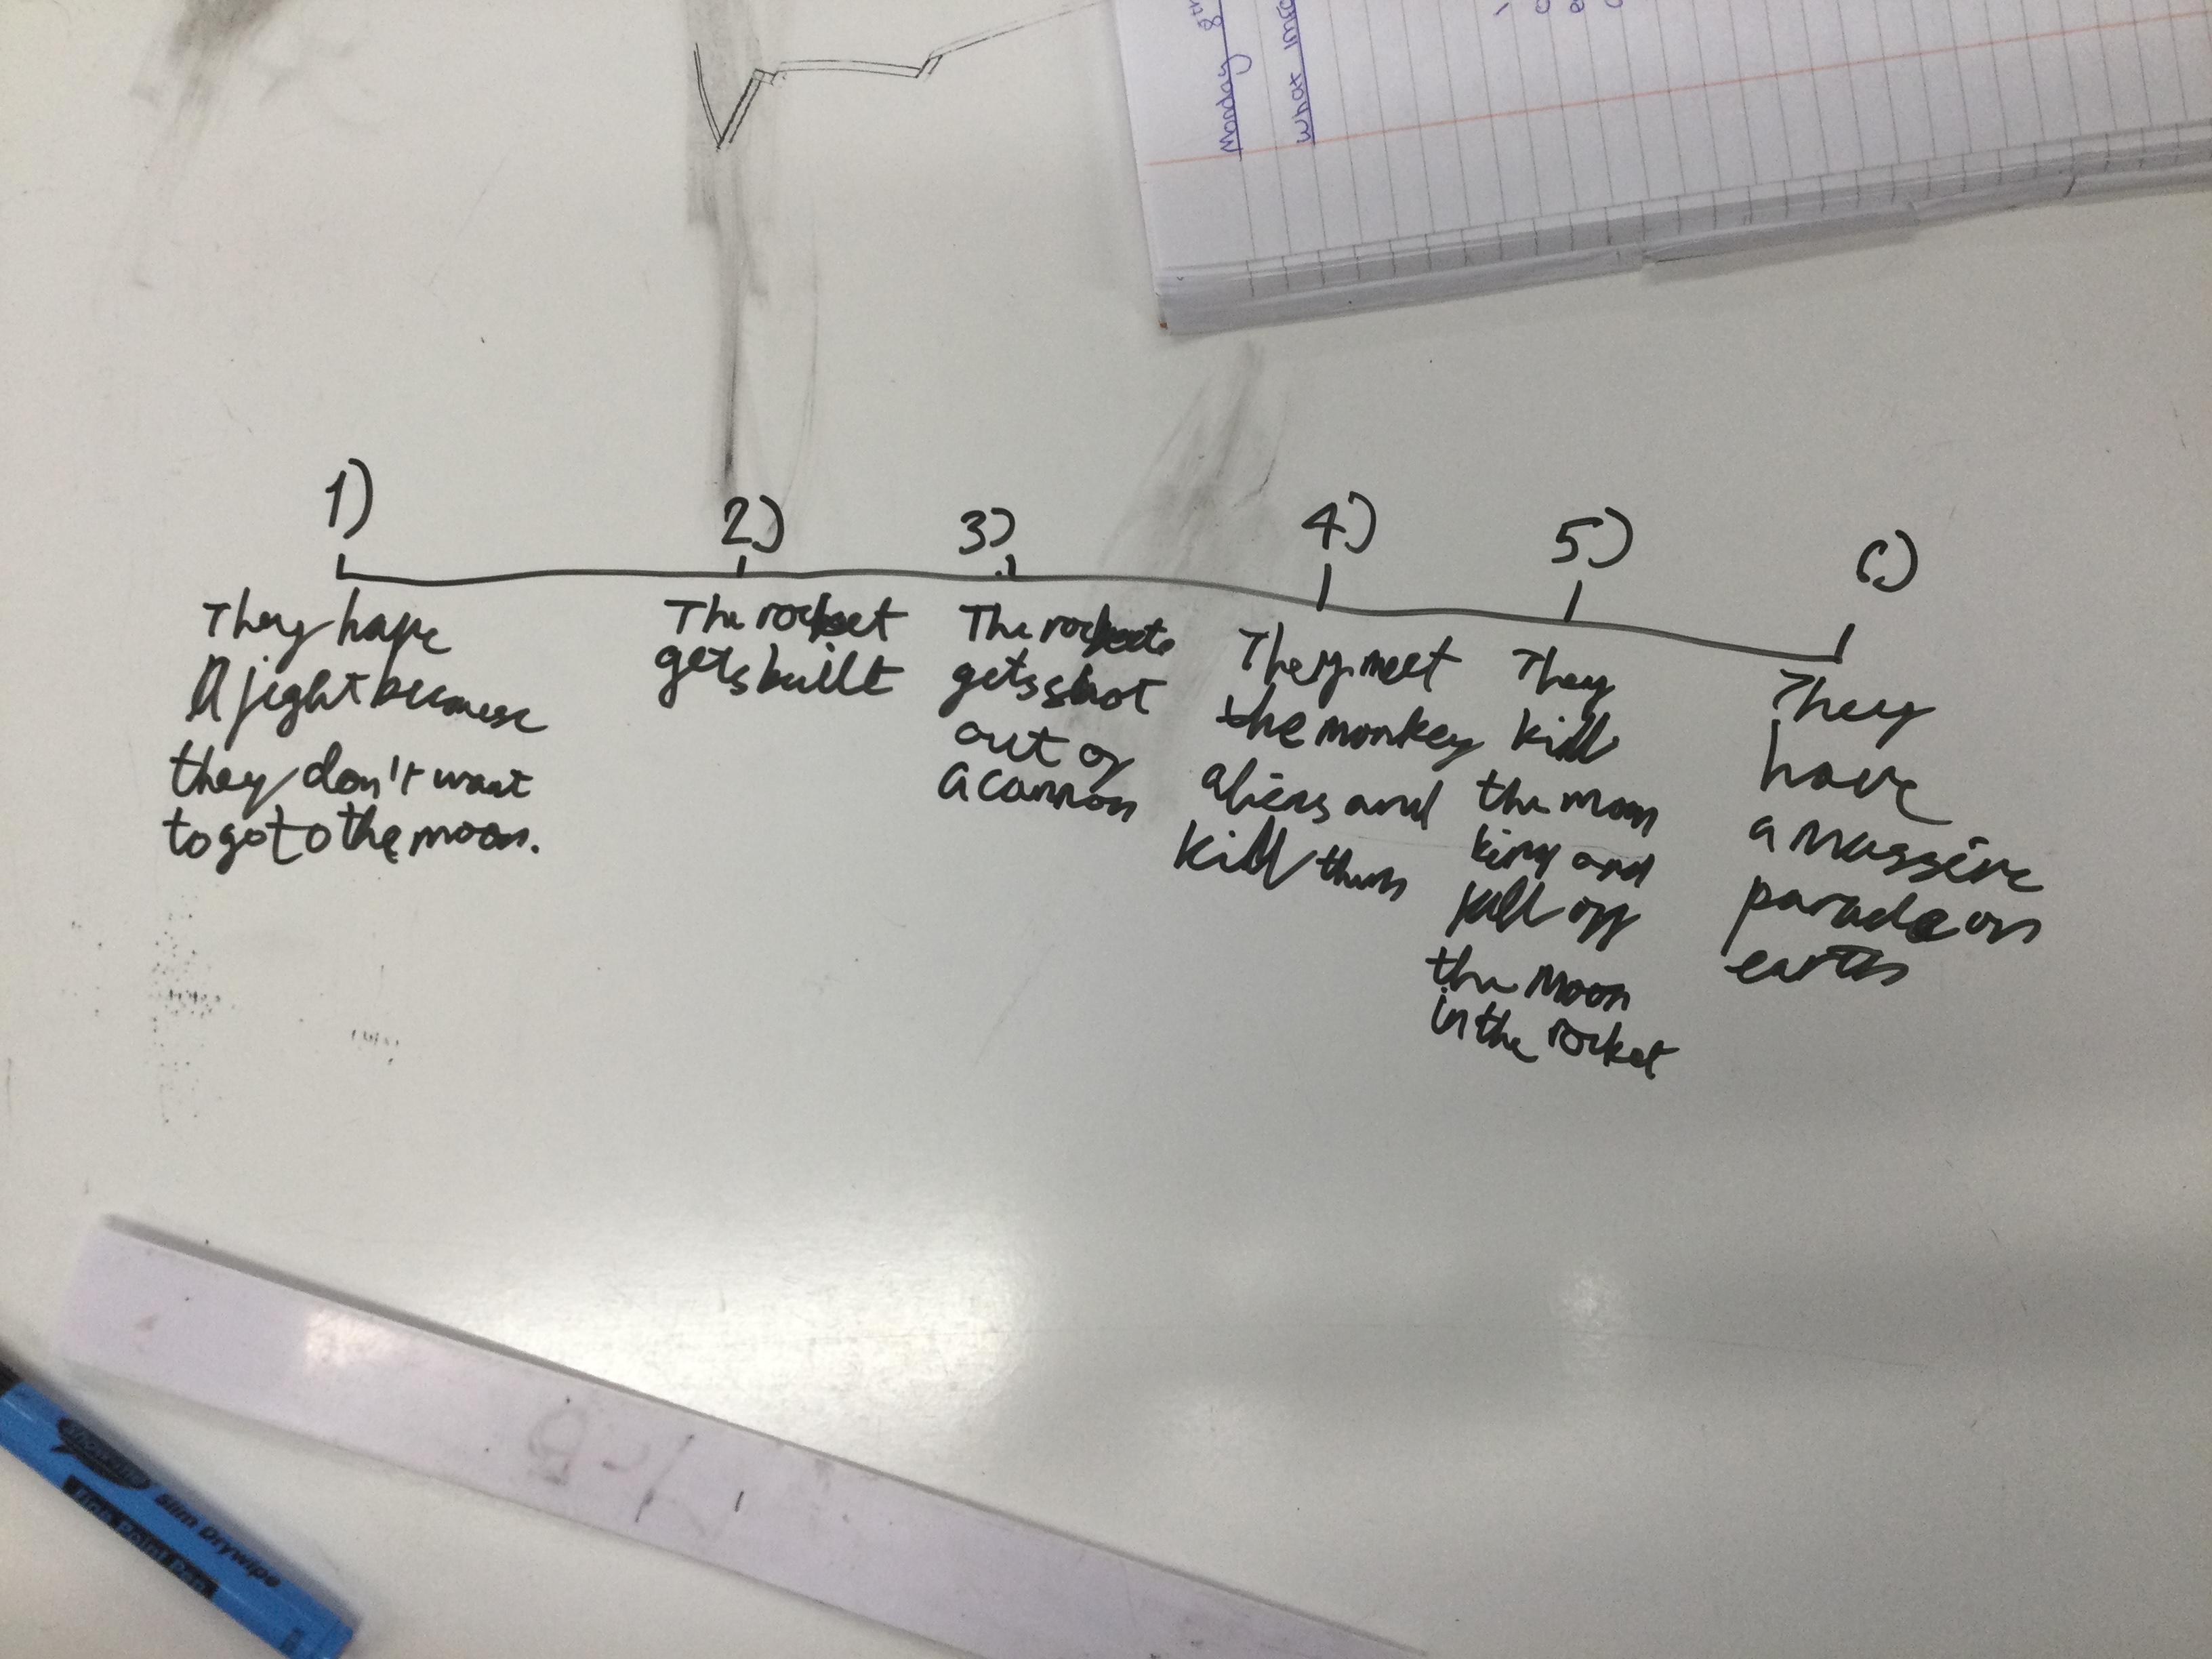 Monday 8th
What
1)
They have
A fight because
they don't want
to go to the moon.
2)
The rocket
gets built
3)
The rockets
gets shot
out of
a cannon
4)
They meet
the monkey
aliens and
kill them
5)
They
kill
the moon
king and
fall off
the Moon
in the rocket
6)
They
have
a massive
parade on
earth
Slim Drywipe